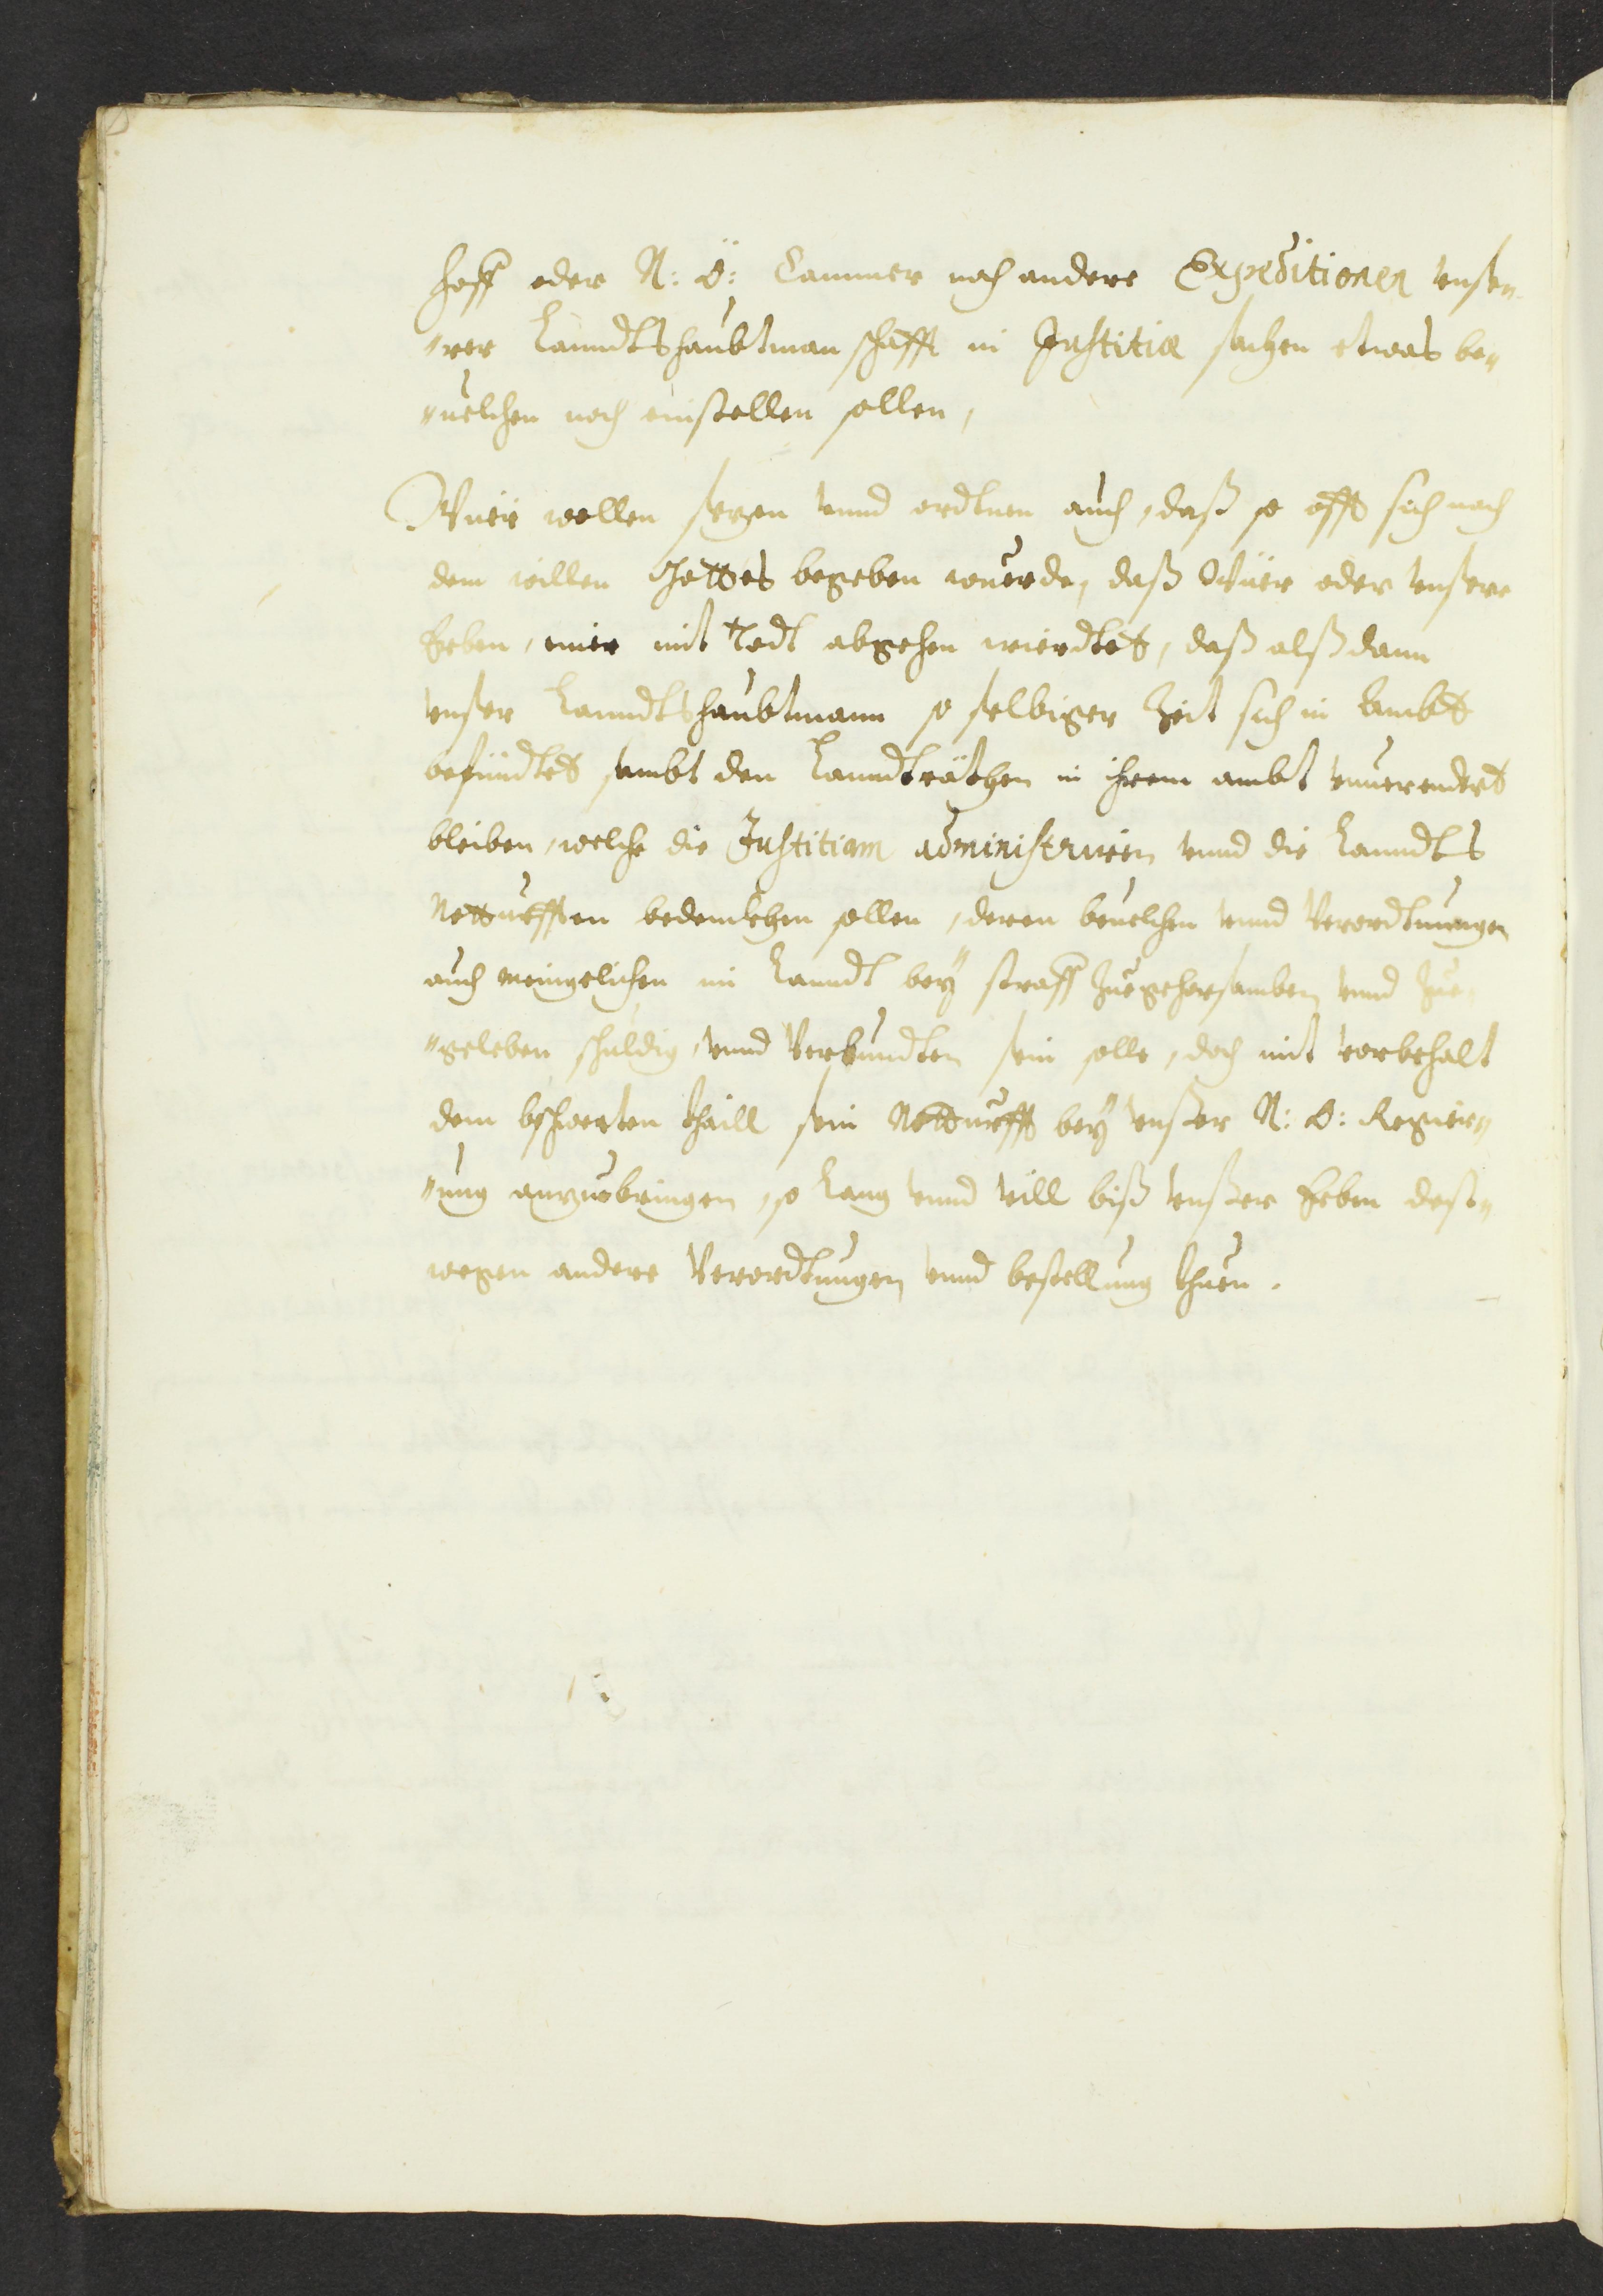 hoff oder N: Ö: Cammer noch andere Expeditionen vnser¬
"rer Lanndtshaubtmanschafft in Justitiæ sachen etwas be"
"uelchen noch einstellen sollen,
Wüer wellen sezen vnnd ordtnen auch, daß so offt sich nach
dem willen Gottes begeben wuerde, daß Wüer oder vnsere
Erben, einer mit Todt abgehen wierdtet, daß alßdann
vnser Lanndtshaubtmann so selbiger Zeit sich in Ambt
befündtet sambt den Lanndträthen in ihrem ambt vnuerendert
bleiben, welche die Justitiam administrirn vnnd die Lanndts
Notturfften bedenckhen sollen, deren beuelchen vnnd Verordtnungen
auch meingelichen im Lanndt bey straff Zuegehorsamben vnnd Zue"
"geleben schuldig, vnnd Verbundten sein solle, doch mit vorbehalt
dem bschwerten thaill sein Notturfft bey vnser N: Ö: Regier"
"ung anzuebringen, so Lang vnnd vill biß vnser Erben dest"
wegen andere Verordtungen vnnd bestellung thuen.